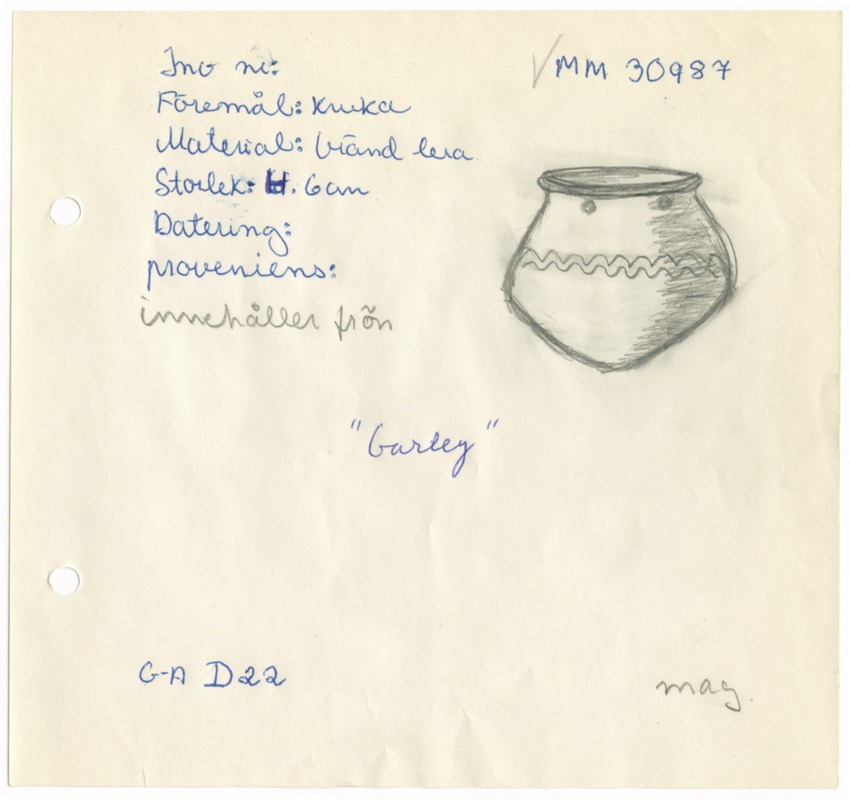 Inv nr:
MM 30987
Föremål: kruka
Material: bränd lera
Storlek: H. 6 cm
Datering:
proveniens:
innehåller frön
"Garley"
G-A D22
mag.